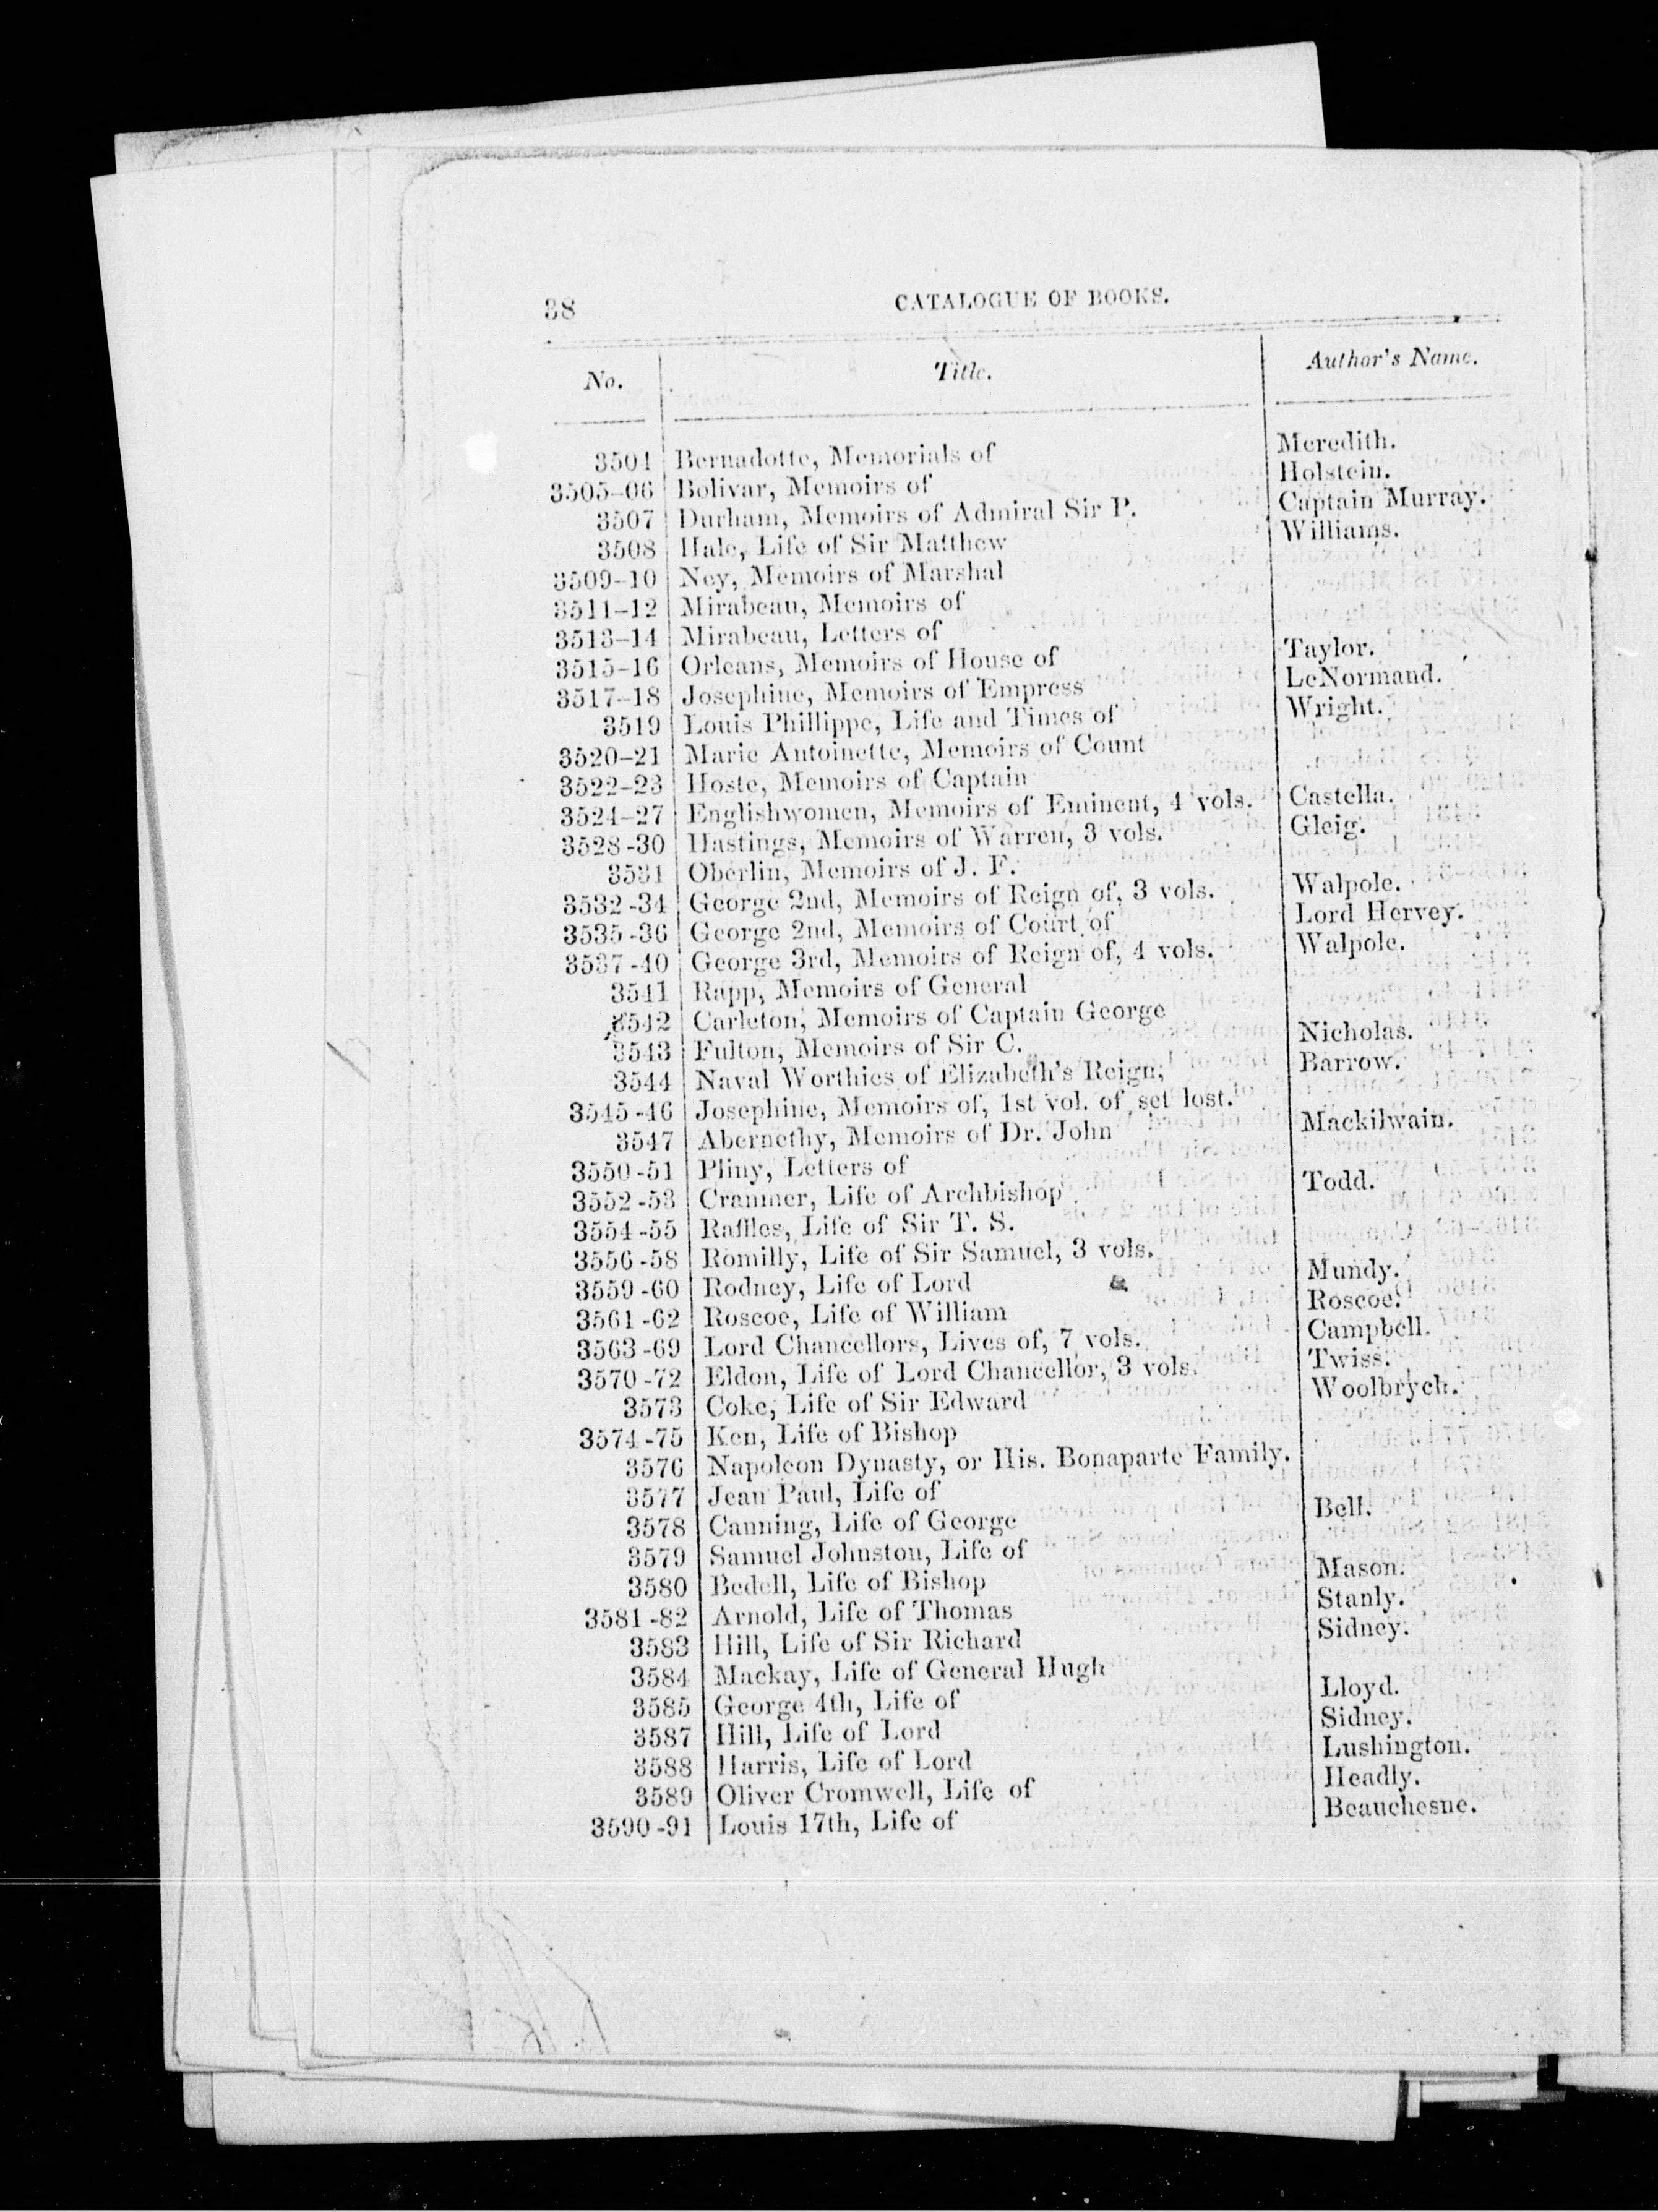 38 CATALOGUE OF BOOKS.
No. Title. Author's Name.
3504 Bernadotte, Memorials of Meredith.
3505-06 Bolivar, Memoirs of Holstein.
3507 Durham, Memoirs of Admiral Sir P. Captain Murray.
3508 Hale, Life of Sir Matthew Williams.
3509-10 Ney, Memoirs of Marshal
3511-12 Mirabeau, Memoirs of
3513-14 Mirabeau, Letters of
3515-16 Orleans, Memoirs of House of Taylor.
3517-18 Josephine, Memoirs of Empress LeNormand.
3519 Louis Phillippe, Life and Times of Wright.
3520-21 Marie Antoinette, Memoirs of Count
3522-23 Hoste, Memoirs of Captain
3524-27 Englishwomen, Memoirs of Eminent, 4 vols. Castella.
3528-30 Hastings, Memoirs of Warren, 3 vols. Gleig.
3531 Oberlin, Memoirs of J. F.
3532-34 George 2nd, Memoirs of Reign of, 3 vols. Walpole.
3535-36 George 2nd, Memoirs of Court of Lord Hervey.
3537-40 George 3rd, Memoirs of Reign of, 4 vols. Walpole.
3541 Rapp, Memoirs of General
3542 Carleton, Memoirs of Captain George
3543 Fulton, Memoirs of Sir C. Nicholas.
3544 Naval Worthies of Elizabeth's Reign, Barrow.
3545-46 Josephine, Memoirs of, 1st vol. of set lost.
3547 Abernethy, Memoirs of Dr. John Mackilwain.
3550-51 Pliny, Letters of
3552-53 Cranmer, Life of Archbishop Todd.
3554-55 Raffles, Life of Sir T. S.
3556-58 Romilly, Life of Sir Samuel, 3 vols.
3559-60 Rodney, Life of Lord Mundy.
3561-62 Roscoe, Life of William Roscoe.
3563-69 Lord Chancellors, Lives of, 7 vols. Campbell.
3570-72 Eldon, Life of Lord Chancellor, 3 vols. Twiss.
3573 Coke, Life of Sir Edward Woolbrych.
3574-75 Ken, Life of Bishop
3576 Napoleon Dynasty, or His. Bonaparte Family.
3577 Jean Paul, Life of
3578 Canning, Life of George Bell.
3579 Samuel Johnston, Life of
3580 Bedell, Life of Bishop Mason.
3581-82 Arnold, Life of Thomas Stanly.
3583 Hill, Life of Sir Richard Sidney.
3584 Mackay, Life of General Hugh
3585 George 4th, Life of Lloyd.
3587 Hill, Life of Lord Sidney.
3588 Harris, Life of Lord Lushington.
3589 Oliver Cromwell, Life of Headly.
3590-91 Louis 17th, Life of Beauchesne.